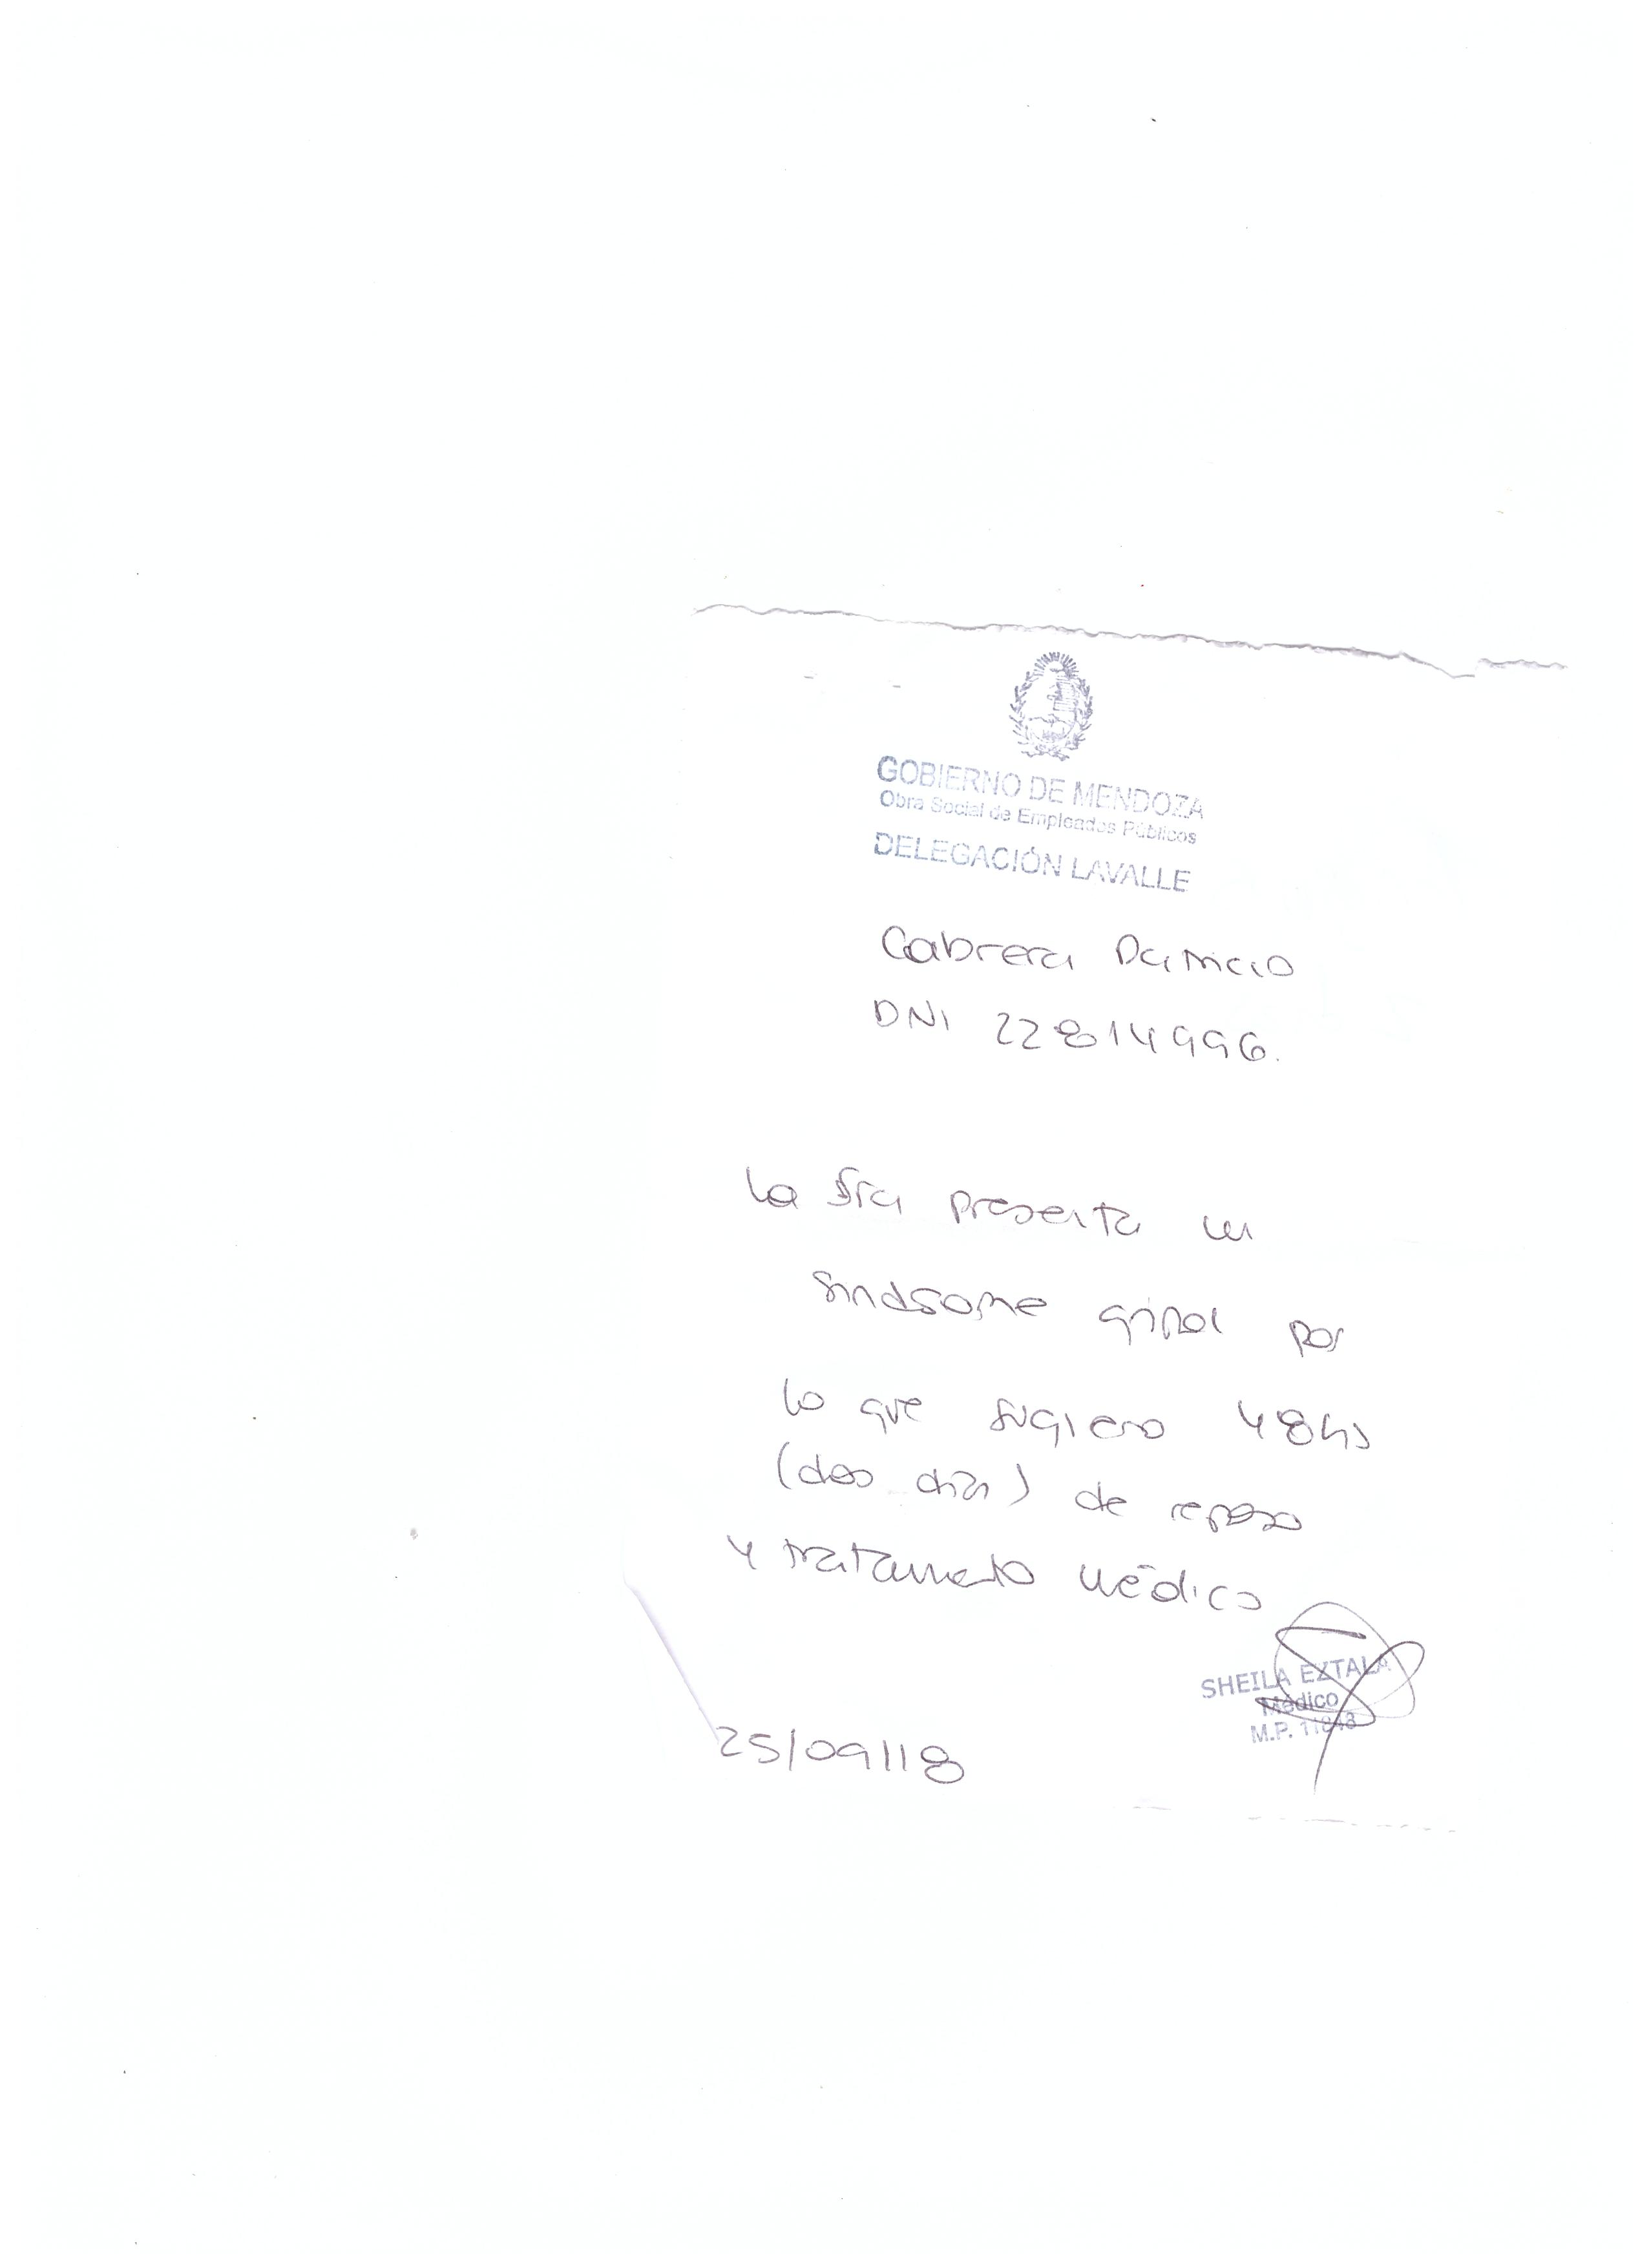 GOBIERNO DE MENDOZA
Obra Social de Empleados Públicos
DELEGACIÓN LAVALLE
Cabrera
DNI 22814996.
La Sra presenta un
sindrome gripal por
lo que sugiero 48hs
(dos días) de reposo
y tratamiento médico
SHEILA EZTALA
Médico
M.P.
25/09/18